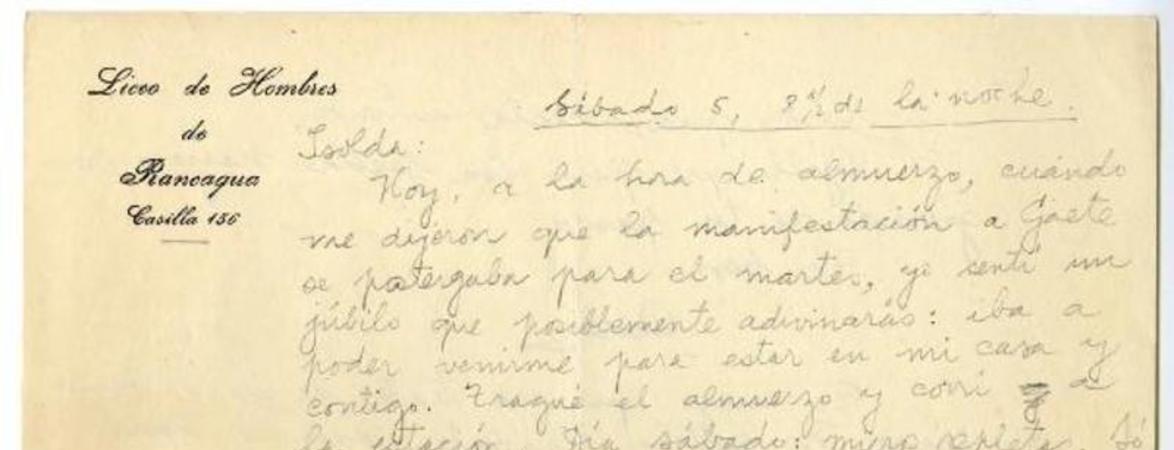 Liceo de Hombres
de
Rancagua
Casilla 156
Sábado 5, 8 1/2 de la noche.
Isolda:
Hoy, a la hora de almuerzo, cuándo
me dijeron que la manifestación a Gaete
se postergaba para el martes, yo sentí un
júbilo que posiblemente adivinarás: iba a
poder venirme para estar en mi casa y
contigo. Tragué el almuerzo y corrí a
la estación. Día sábado: micro repleta.